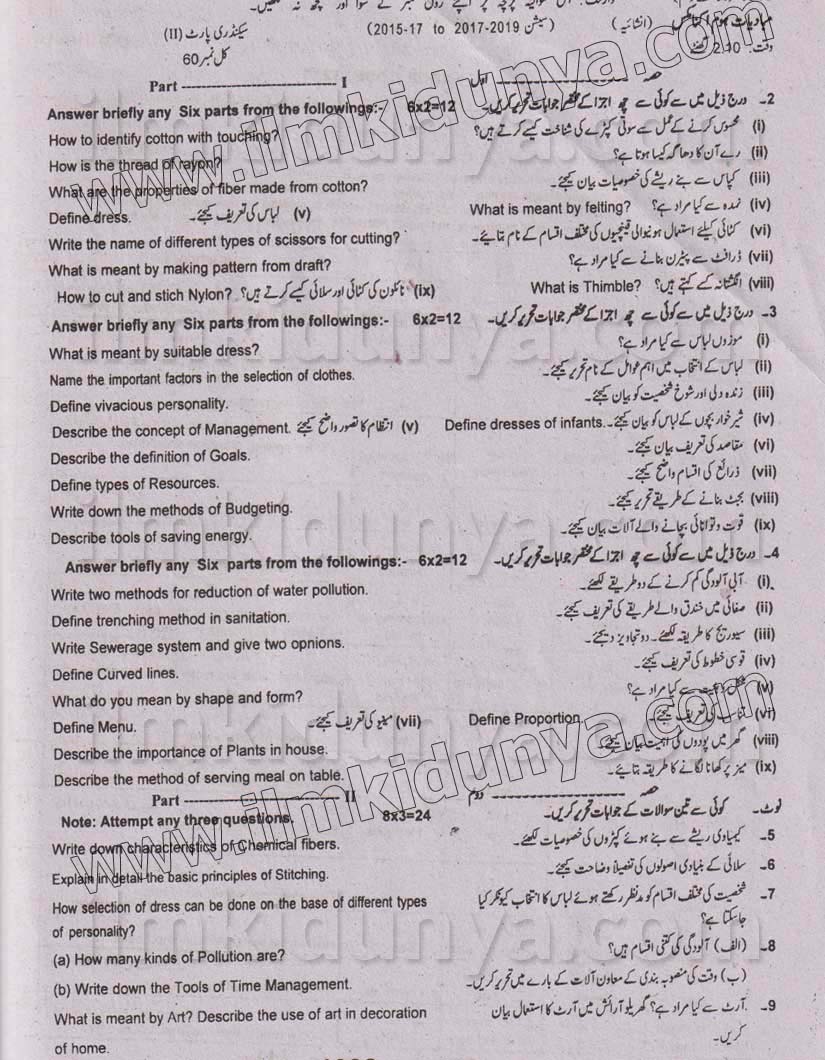 مبادیات ہوم اکنامکس (انشائیہ) (سیشن 2015-17 to 2017-2019) سیکنڈری پارٹ (II)
وقت: 2.10 گھنٹے کل نمبر 60
Part ---------------------------------- I حصہ ---------------------- اول
Answer briefly any Six parts from the followings:- 6x2=12 2۔ درج ذیل میں سے کوئی سے چھ اجزا کے مختصر جوابات تحریر کریں۔
How to identify cotton with touching? (i) محسوس کرنے کے عمل سے سوتی کپڑے کی شناخت کیسے کرتے ہیں؟
How is the thread of rayon? (ii) رے آن کا دھاگہ کیسا ہوتا ہے؟
What are the properties of fiber made from cotton? (iii) کپاس سے بنے ریشے کی خصوصیات بیان کیجئے۔
Define dress. لباس کی تعریف کیجئے۔ (v) What is meant by felting? (iv) نمدہ سے کیا مراد ہے؟
Write the name of different types of scissors for cutting? (vi) کٹائی کیلئے استعمال ہونیوالی قینچیوں کی مختلف اقسام کے نام بتائیے۔
What is meant by making pattern from draft? (vii) ڈرافٹ سے پیٹرن بنانے سے کیا مراد ہے؟
How to cut and stich Nylon? نائلون کی کٹائی اور سلائی کیسے کرتے ہیں؟ (ix) What is Thimble? (viii) انگشتانہ کسے کہتے ہیں؟
Answer briefly any Six parts from the followings:- 6x2=12 3۔ درج ذیل میں سے کوئی سے چھ اجزا کے مختصر جوابات تحریر کریں۔
What is meant by suitable dress? (i) موزوں لباس سے کیا مراد ہے؟
Name the important factors in the selection of clothes. (ii) لباس کے انتخاب میں اہم عوامل کے نام تحریر کیجئے۔
Define vivacious personality. (iii) زندہ دلی اور شوخ شخصیت کو بیان کیجئے۔
Describe the concept of Management. انتظام کا تصور واضح کیجئے (v) Define dresses of infants. (iv) شیر خوار بچوں کے لباس کو بیان کیجئے۔
Describe the definition of Goals. (vi) مقاصد کی تعریف بیان کیجئے۔
Define types of Resources. (vii) ذرائع کی اقسام واضح کیجئے۔
Write down the methods of Budgeting. (viii) بجٹ بنانے کے طریقے تحریر کیجئے۔
Describe tools of saving energy. (ix) قوت و توانائی بچانے والے آلات بیان کیجئے۔
Answer briefly any Six parts from the followings:- 6x2=12 4۔ درج ذیل میں سے کوئی سے چھ اجزا کے مختصر جوابات تحریر کریں۔
Write two methods for reduction of water pollution. (i) آبی آلودگی کم کرنے کے دو طریقے لکھئے۔
Define trenching method in sanitation. (ii) صفائی میں خندق والے طریقے کی تعریف کیجئے۔
Write Sewerage system and give two opnions. (iii) سیوریج کا طریقہ لکھئے۔ دو تجاویز دیجئے۔
Define Curved lines. (iv) قوسی خطوط کی تعریف کیجئے۔
What do you mean by shape and form? (v) سے کیا مراد ہے؟
Define Menu. مینیو کی تعریف کیجئے۔ (vii) Define Proportion. (vi) تناسب کی تعریف کیجئے۔
Describe the importance of Plants in house. (viii) گھر میں پودوں کی اہمیت بیان کیجئے۔
Describe the method of serving meal on table. (ix) میز پر کھانا لگانے کا طریقہ بتائیے۔
Part ---------------------------------- II حصہ ---------------------- دوم
Note: Attempt any three questions. 8x3=24 نوٹ۔ کوئی سے تین سوالات کے جوابات تحریر کریں۔
Write down characteristics of Chemical fibers. 5۔ کیمیاوی ریشے سے بنے ہوئے کپڑوں کی خصوصیات لکھئے۔
Explain in detail the basic principles of Stitching. 6۔ سلائی کے بنیادی اصولوں کی تفصیلاً وضاحت کیجئے۔
How selection of dress can be done on the base of different types 7۔ شخصیت کی مختلف اقسام کو مدنظر رکھتے ہوئے لباس کا انتخاب کیونکر کیا
of personality? جاسکتا ہے؟
(a) How many kinds of Pollution are? 8۔ (الف) آلودگی کی کتنی اقسام ہیں؟
(b) Write down the Tools of Time Management. (ب) وقت کی منصوبہ بندی کے معاون آلات کے بارے میں تحریر کریں۔
What is meant by Art? Describe the use of art in decoration 9۔ آرٹ سے کیا مراد ہے؟ گھریلو آرائش میں آرٹ کا استعمال بیان
of home. کریں۔
www.ilmkidunya.com
www.ilmkidunya.com
ilmkidunya.com
ilmkidunya.com
ilmkidunya.com
ilmkidunya.com